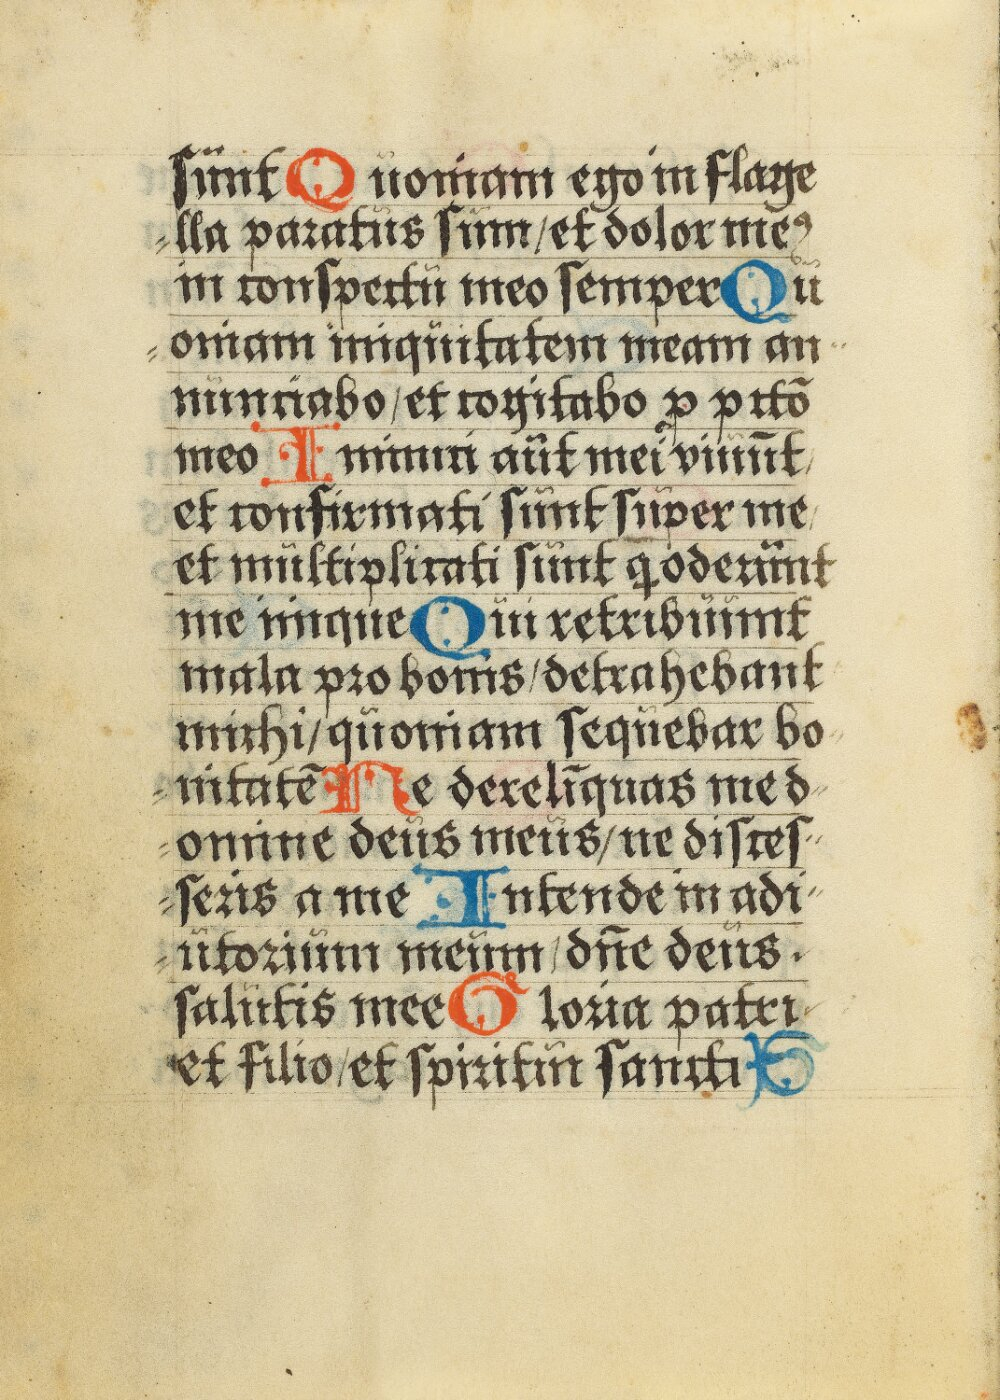 sunt Quoniam ego in flage
lla paratus sum/et dolor meꝰ
in conspectu meo semper Qu
oniam iniquitatem meam an
nunciabo/et cogitabo p pctō
meo Inimici aūt mei viuūnt/
et confirmati sunt super me/
et multiplicati sunt q oderunt
me inique Qui retribuunt
mala pro bonis/detrahebant
michi/quoniam sequebar bo
nitatē Ne derelīquas me d
omine deus meus/ne disces
seris a me Intende in adi
utorium meum/dñe deus.
salutis mee Gloria patri
et filio/et spiritui sancti S